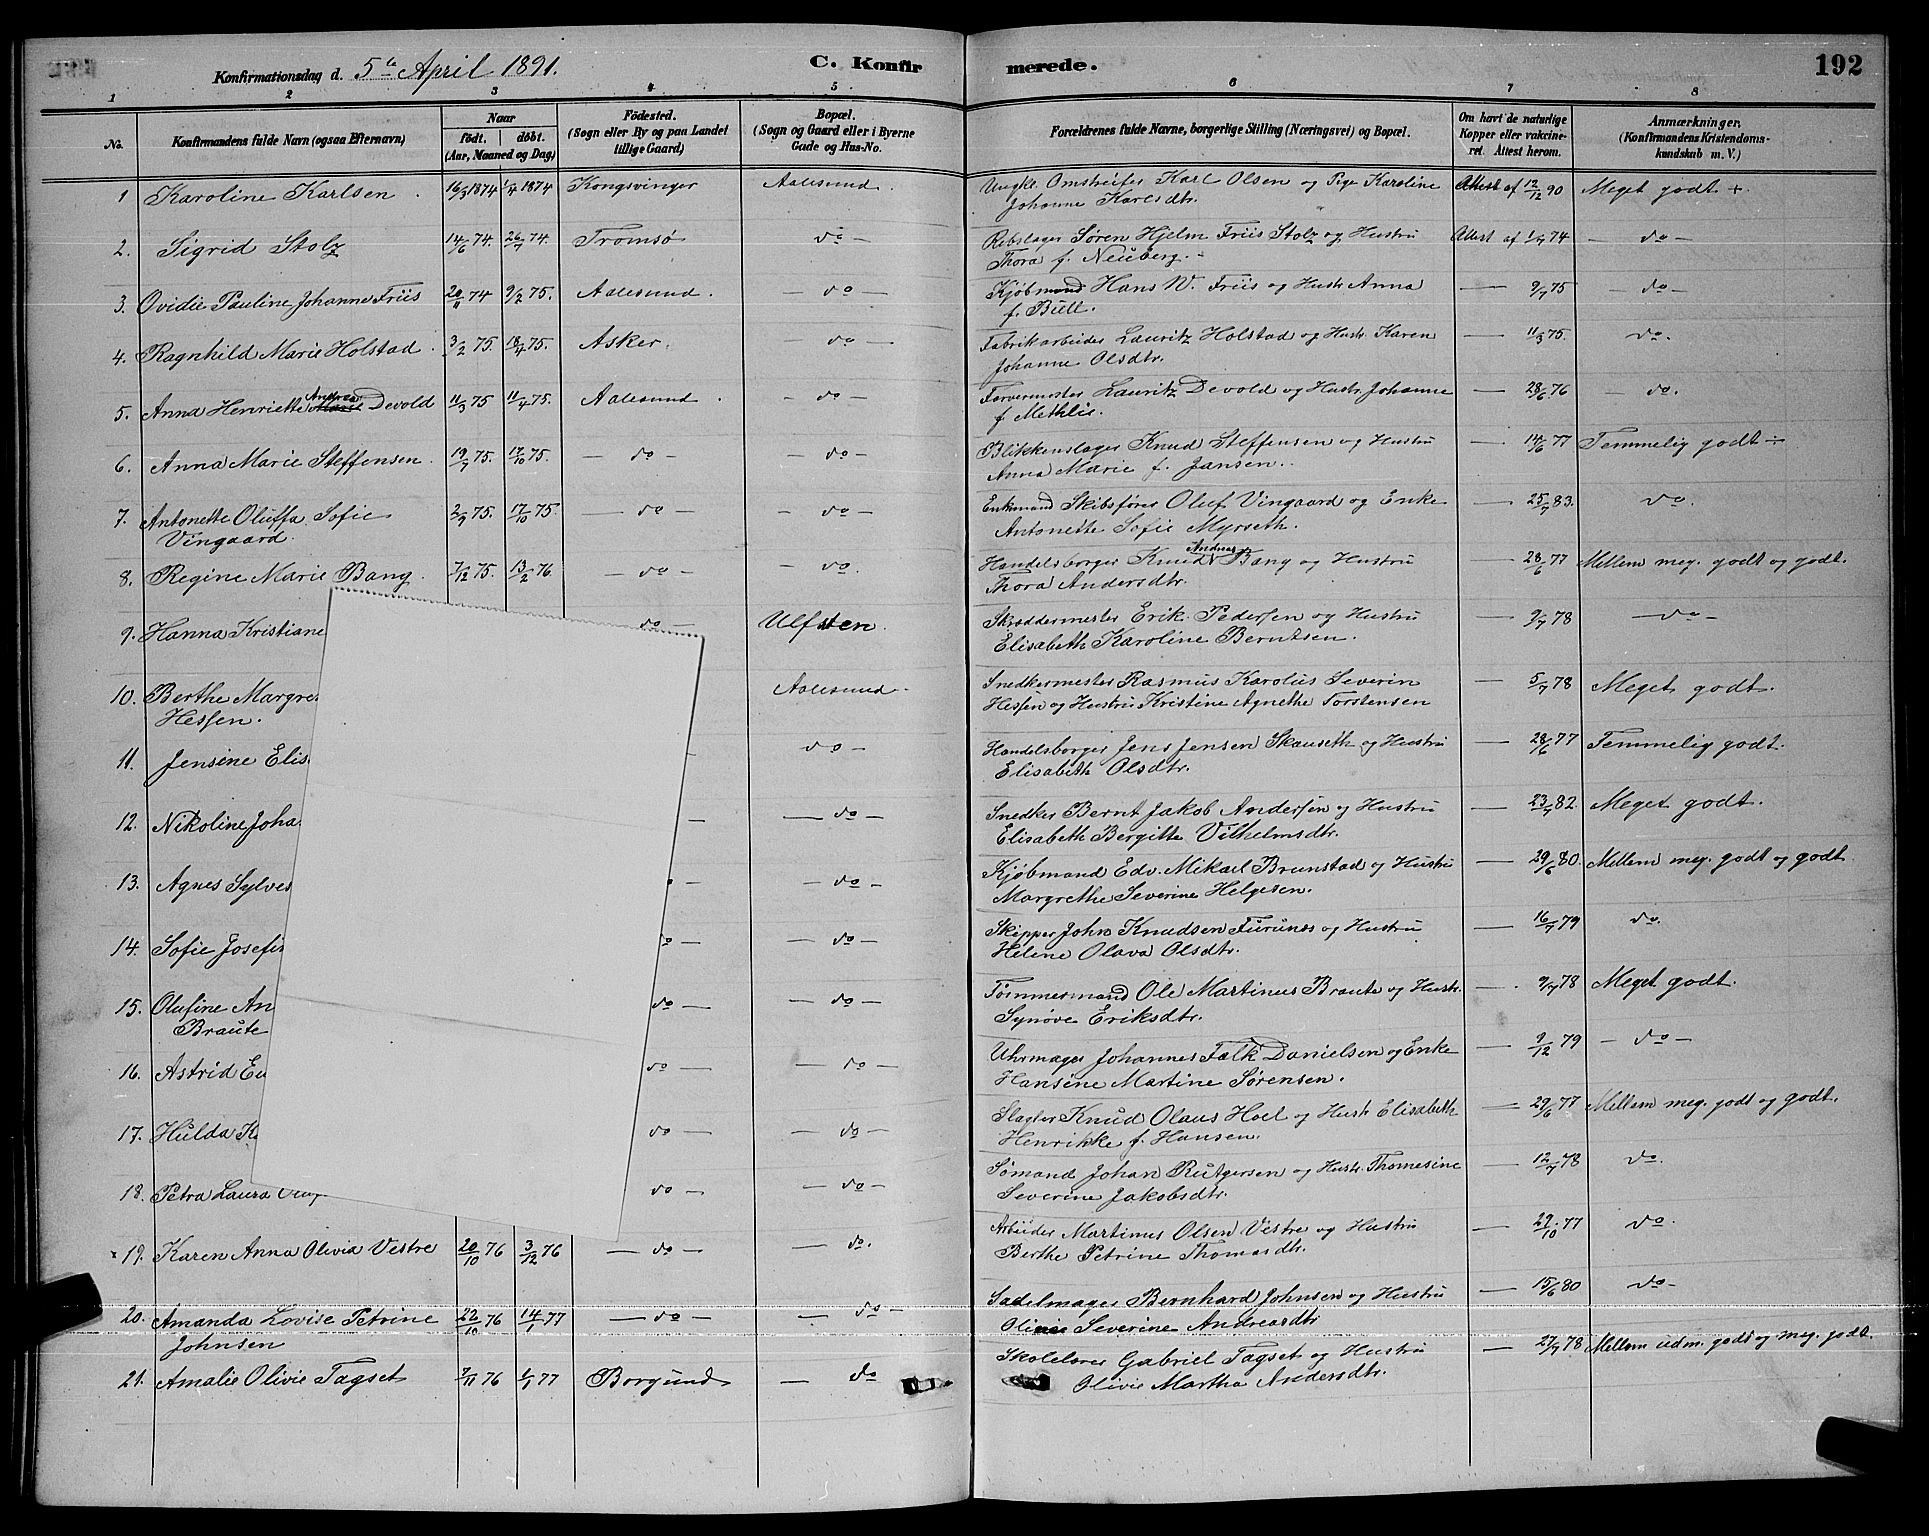 Konfirmationsdag d. 5te April 1891. C. Konfirmerede. 192
1 2 3 4 5 6 7 8
No. Konfirmandens fulde Navn (ogsaa Efternavn) Naar født. døbt. (Aar, Maaned og Dag) Fødested. (Sogn eller By og paa Landet tillige Gaard) Bopæl. (Sogn og Gaard eller i Byerne Gade og Hus-No. Forældrenes fulde Navne, borgerlige Stilling (Næringsvei) og Bopæl. Om havt de naturlige Kopper eller vakcineret. Attest herom. Anmærkninger, (Konfirmandens Kristendomskundskab m. V.)
1 Karoline Karlsen 16/3 1874 1/4 1874 Kongsvinger Aalesund. Ungk. Omstreifer Karl Olsen og Pige Karoline Attest af 12/12 90 Meget godt +.
Johanne Karlsdtr.
2. Sigrid Stolz 14/6 74. 26/7 74. Tromsø do — Rebslager Søren Hjelm Friis Stolz og Hustru Attest af 1/7 74 — do —
Thora f. Neuberg.
3. Ovidie Pauline Johanne Friis 20/11 74 9/2 75. Aalesund. — do — Kjøbmand Hans W. Friis og Hustr. Anna — 9/7 75 — do —
f. Bull.
4. Ragnhild Marie Holstad. 3/2 75. 18/4 75. Asker. — do — Fabrikarbeider Lauritz Holstad og Hustr. Karen — 11/3 75. do.
Johanne Olsdtr.
5. Anna Henriette Andrea Devold 11/3 75 11/4 75. Aalesund. — do — Farvermester Lauritz Devold og Hustr. Johanne — 28/6 76 — do.
f. Methlie.
6. Anna Marie Steffensen. 19/7 75. 17/10 75. — do — — do — Blikkenslager Knud Steffensen og Hustru — 14/6 77 Temmelig godt ÷
Anna Marie f. Jansen.
7. Antonette Oluffa Sofie 2/9 75. 17/10 75. — do — — do — Enkemand Skibsfører Oluf Vingaard og Enke — 25/7 83. do.
Vingaard. Antonette Sofie Myrseth.
8. Regine Marie Bang. 7/12 75. 13/2 76. — do — — do. Handelsborger Knud Andreas Bang og Hustru — 28/6 77 Mellem meg. godt og godt.
Thora Andersdtr.
9. Hanna Kristiane do — Ulfsten. Skræddermester Erik Pedersen og Hustru — 9/7 78 — do —
Elisabeth Karoline Berntsen.
10. Berthe Margre Aalesund. Snedkermester Rasmus Karolus Severin — 5/7 78 Meget godt.
Hessen. Hessen og Hustru Kristine Agnethe Torstensen
11. Jensine Elis — do — Handelsborger Jens Jensen Skauseth og Hustru — 28/6 77 Temmelig godt.
Elisabeth Olsdtr.
12. Nikoline Joha — — do — Snedker Bernt Jakob Andersen og Hustru — 23/7 82. Meget godt.
Elisabeth Bergitte Vilhelmsdtr.
13. Agnes Sylves — — do — Kjøbmand Edv. Mikael Brunstad og Hustru — 29/6 80. Mellem meg. godt og godt
Margrethe Severine Helgesen.
14. Sofie Josefi do — — do — Skipper John Knudsen Furunes og Hustru — 16/7 79 do.
Helene Olava Olsdtr.
15. Olufine An do — — do — Tømmermand Ole Martinus Braute og Hustr. — 9/7 78 Meget godt.
Braute Synøve Eriksdtr.
16. Astrid Eu do — — do — Uhrmager Johannes Falk Danielsen og Enke — 9/12 79 — do —
Hansine Martine Sørensen.
17. Hulda K do — — do — Slagter Knud Olaus Hoel og Hustr. Elisabeth — 29/6 77 Mellem meg. godt og godt.
Henrikke f. Hansen.
18. Petra Laura do — — do — Sømand Johan Rutgersen og Hustr. Thomesine — 12/7 78 do.
Severine Jakobsdtr.
19. Karen Anna Olivia Vestre 20/10 76 3/12 76 — do — — do. Arbeider Martinus Olsen Vestre og Hustru — 29/10 77 do.
Berthe Petrine Thomasdtr.
20. Amanda Lovise Petrine 22/10 76 14/1 77 — do — — do — Sadelmager Bernhard Johnsen og Hustru — 15/6 80 do —
Johnsen Severine Andreasdtr
21. Amalie Olivie Tagset 7/11 76 1/1 77 Borgund — do Skolelærer Gabriel Tagset og Hustru — 27/7 78 Mellem udm. godt og meg. godt.
Olivie Martha Andersdtr.